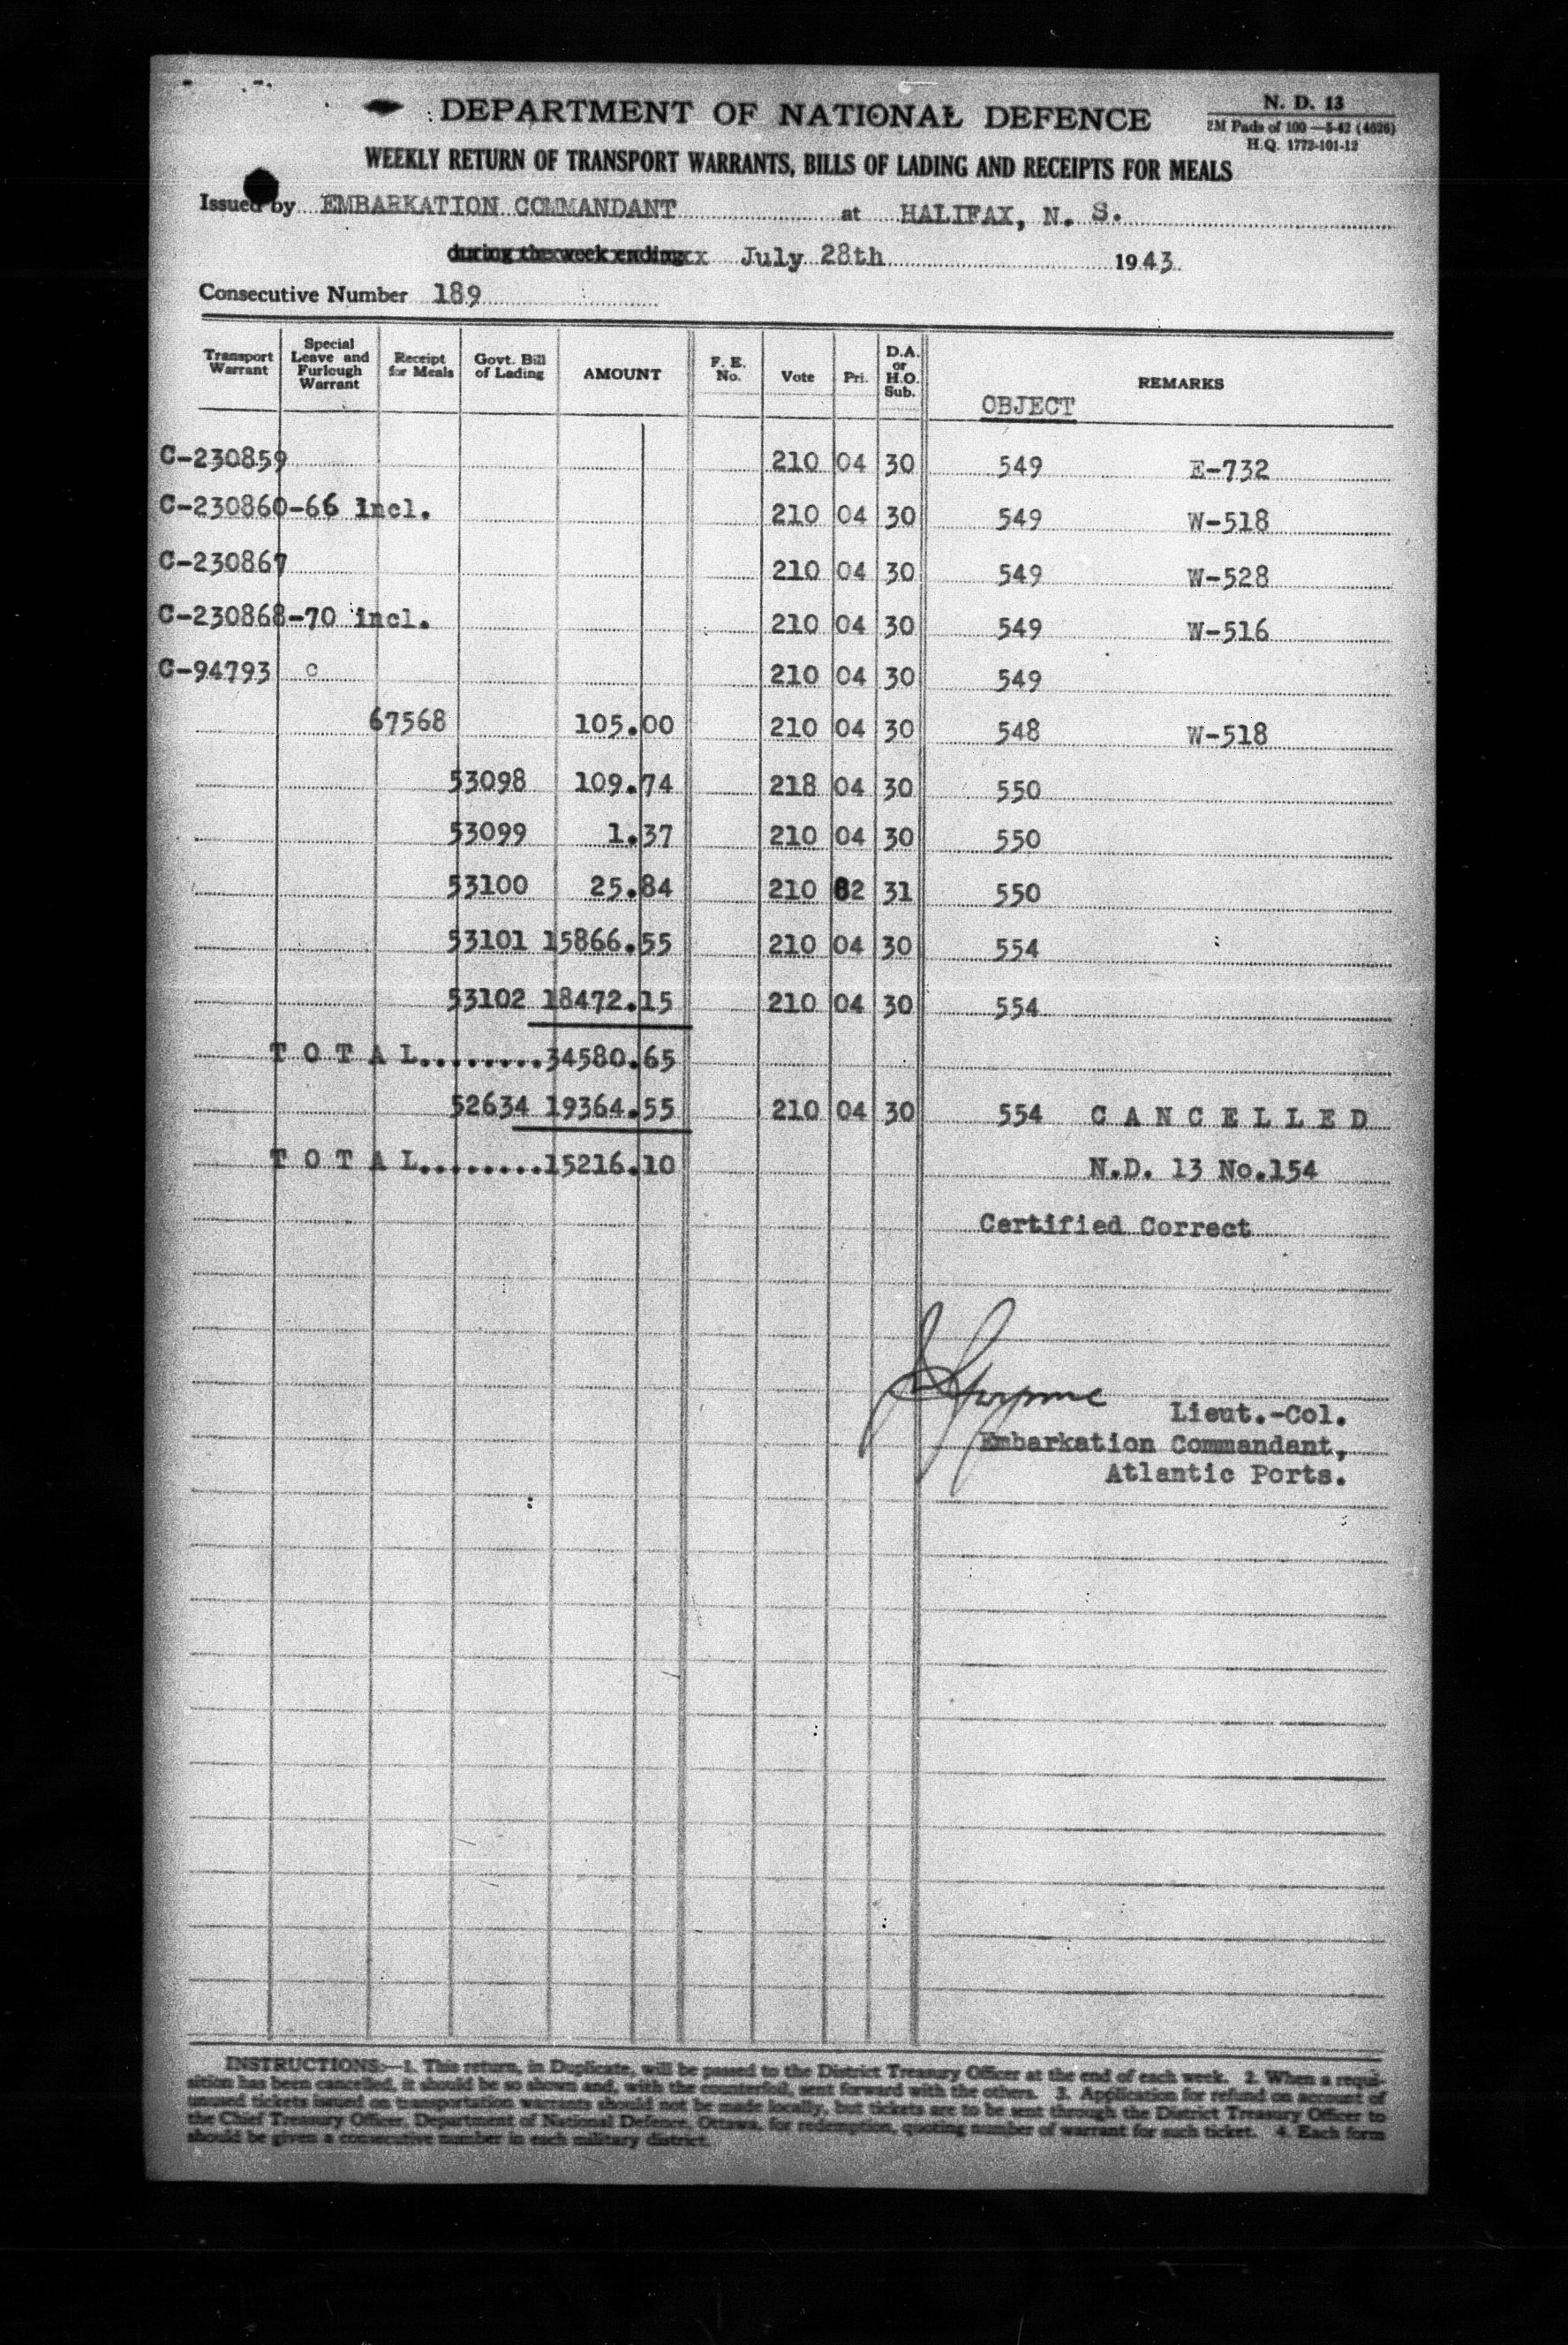 DEPARTMENT OF NATIONAL DEFENCE
N. D. 13
2M Pads of 100—5-42 (4626)
H.Q. 1772-101-12
WEEKLY RETURN OF TRANSPORT WARRANTS, BILLS OF LADING AND RECEIPTS FOR MEALS
Issued by EMBARKATION COMMANDANT at HALIFAX, N. S.
during the week ending July 28th 1943
Consecutive Number 189
Transport Warrant Special Leave and Furlough Warrant Receipt for Meals Govt. Bill of Lading AMOUNT F. E. No. Vote Pri. D.A. or H.O. Sub. OBJECT REMARKS
C-230859 210 04 30 549 E-732
C-230860-66 incl. 210 04 30 549 W-518
C-230867 210 04 30 549 W-528
C-230868-70 incl. 210 04 30 549 W-516
C-94793 c 210 04 30 549
67568 105.00 210 04 30 548 W-518
53098 109.74 218 04 30 550
53099 1.37 210 04 30 550
53100 25.84 210 82 31 550
53101 15866.55 210 04 30 554
53102 18472.15 210 04 30 554
T O T A L........34580.65
52634 19364.55 210 04 30 554 C A N C E L L E D
T O T A L........15216.10 N.D. 13 No.154
Certified Correct
Lieut.-Col.
Embarkation Commandant,
Atlantic Ports.
INSTRUCTIONS:—1. This return, in Duplicate, will be passed to the District Treasury Officer at the end of each week. 2. When a requi-
sition has been cancelled, it should be so shown and, with the counterfoil, sent forward with the others. 3. Application for refund on account of
unused tickets issued on transportation warrants should not be made locally, but tickets are to be sent through the District Treasury Officer to
the Chief Treasury Officer, Department of National Defence, Ottawa, for redemption, quoting number of warrant for such ticket. 4. Each form
should be given a consecutive number in each military district.